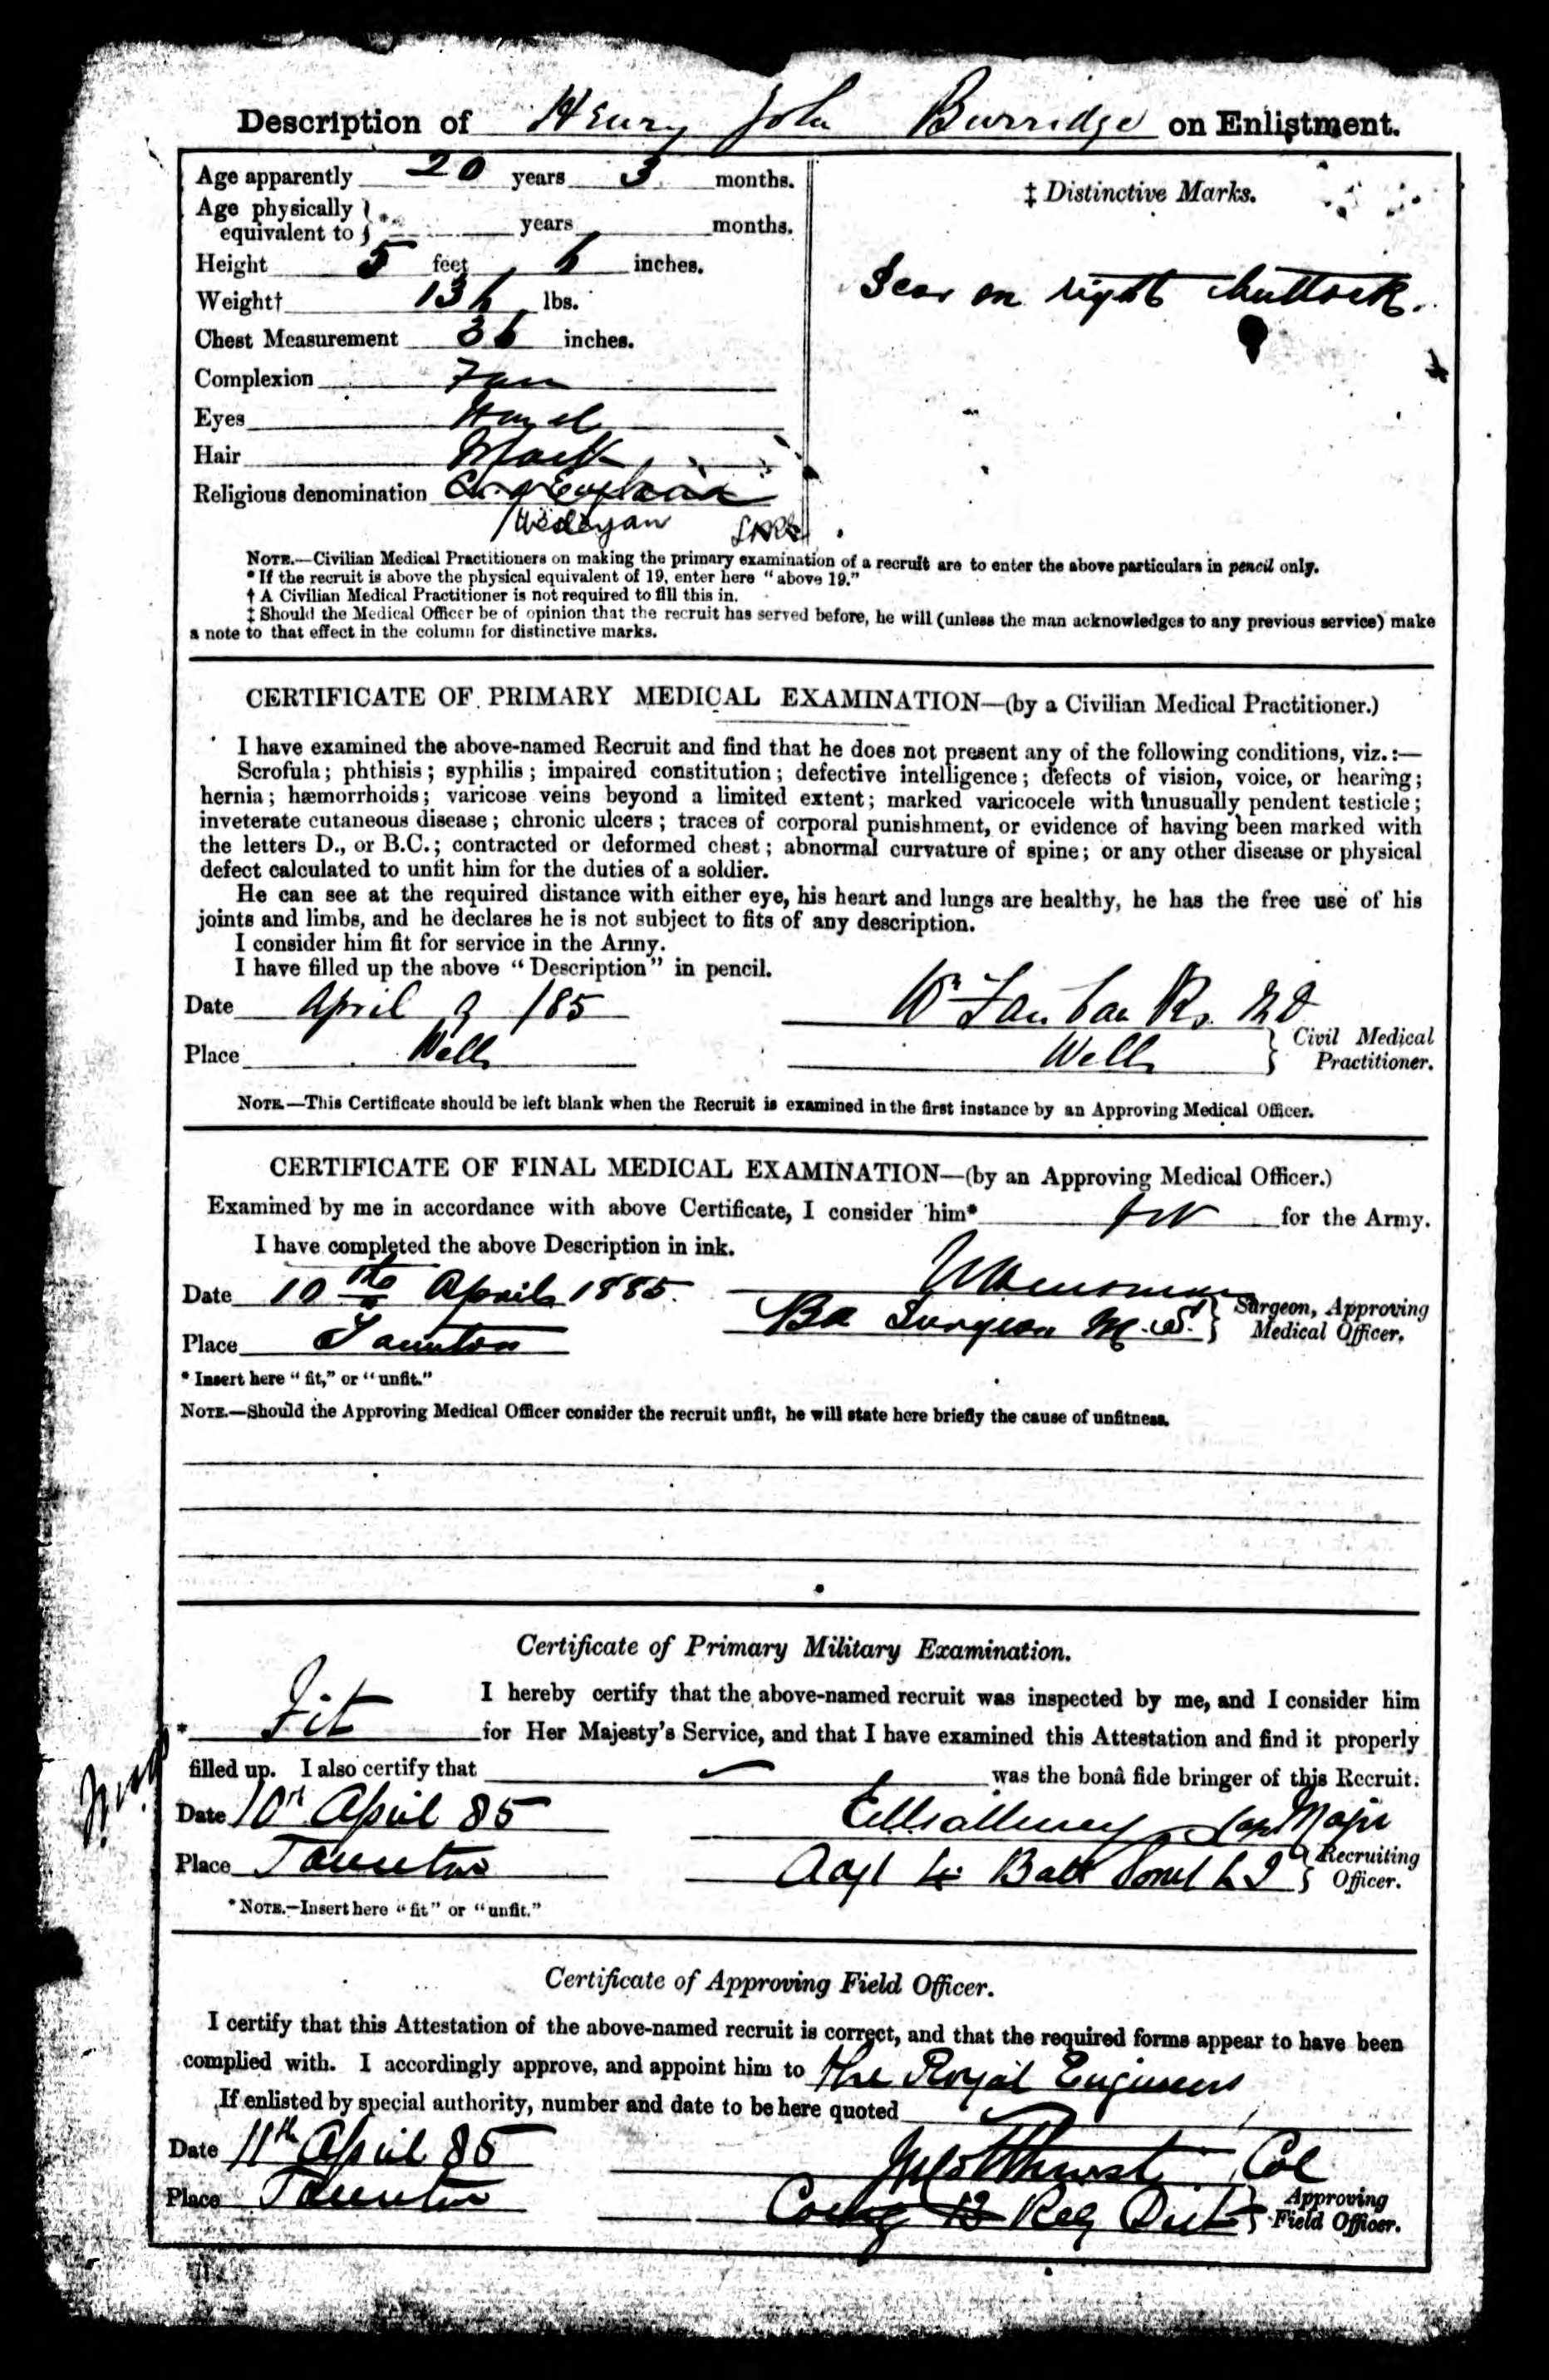 Description of Henry John Burridge on Enlistment.
Age apparently 20 years 3 months.
Age physically equivalent to } * years months.
Height 5 feet, 6 inches.
Weight† 136 lbs.
Chest Measurement 36 inches.
Complexion
Eyes Hazel
Hair Black
Religious denomination Ch. of England
Wesleyan
‡ Distinctive Marks.
Scar on right buttock.
NOTE.—Civilian Medical Practitioners on making the primary examination of a recruit are to enter the above particulars in pencil only.
* If the recruit is above the physical equivalent of 19, enter here "above 19."
† A Civilian Medical Practitioner is not required to fill this in.
‡ Should the Medical Officer be of opinion that the recruit has served before, he will (unless the man acknowledges to any previous service) make
a note to that effect in the column for distinctive marks.
CERTIFICATE OF PRIMARY MEDICAL EXAMINATION—(by a Civilian Medical Practitioner.)
I have examined the above-named Recruit and find that he does not present any of the following conditions, viz.:—
Scrofula; phthisis; syphilis; impaired constitution; defective intelligence; defects of vision, voice, or hearing;
hernia; hæmorrhoids; varicose veins beyond a limited extent; marked varicocele with unusually pendent testicle;
inveterate cutaneous disease; chronic ulcers; traces of corporal punishment, or evidence of having been marked with
the letters D., or B.C.; contracted or deformed chest; abnormal curvature of spine; or any other disease or physical
defect calculated to unfit him for the duties of a soldier.
He can see at the required distance with either eye, his heart and lungs are healthy, he has the free use of his
joints and limbs, and he declares he is not subject to fits of any description.
I consider him fit for service in the Army.
I have filled up the above "Description" in pencil.
Date April 9 /85
Place Wells
Wm Fairbanks MD
Wells } Civil Medical Practitioner.
NOTE.—This Certificate should be left blank when the Recruit is examined in the first instance by an Approving Medical Officer.
CERTIFICATE OF FINAL MEDICAL EXAMINATION—(by an Approving Medical Officer.)
Examined by me in accordance with above Certificate, I consider him* fit for the Army.
I have completed the above Description in ink.
Date 10th April 1885.
Place Taunton
Surgeon M.S. } Surgeon, Approving Medical Officer.
* Insert here "fit," or "unfit."
NOTE.—Should the Approving Medical Officer consider the recruit unfit, he will state here briefly the cause of unfitness.
Certificate of Primary Military Examination.
I hereby certify that the above-named recruit was inspected by me, and I consider him
* Fit for Her Majesty's Service, and that I have examined this Attestation and find it properly
filled up. I also certify that — was the bonâ fide bringer of this Recruit.
Date 10th April 85
Place Taunton
Major
Adjt 4 Batt Somt L I } Recruiting Officer.
* NOTE.—Insert here "fit" or "unfit."
Certificate of Approving Field Officer.
I certify that this Attestation of the above-named recruit is correct, and that the required forms appear to have been
complied with. I accordingly approve, and appoint him to the Royal Engineers
If enlisted by special authority, number and date to be here quoted
Date 11th April 85
Place Taunton
Col
Comg 13 Reg Dist } Approving Field Officer.